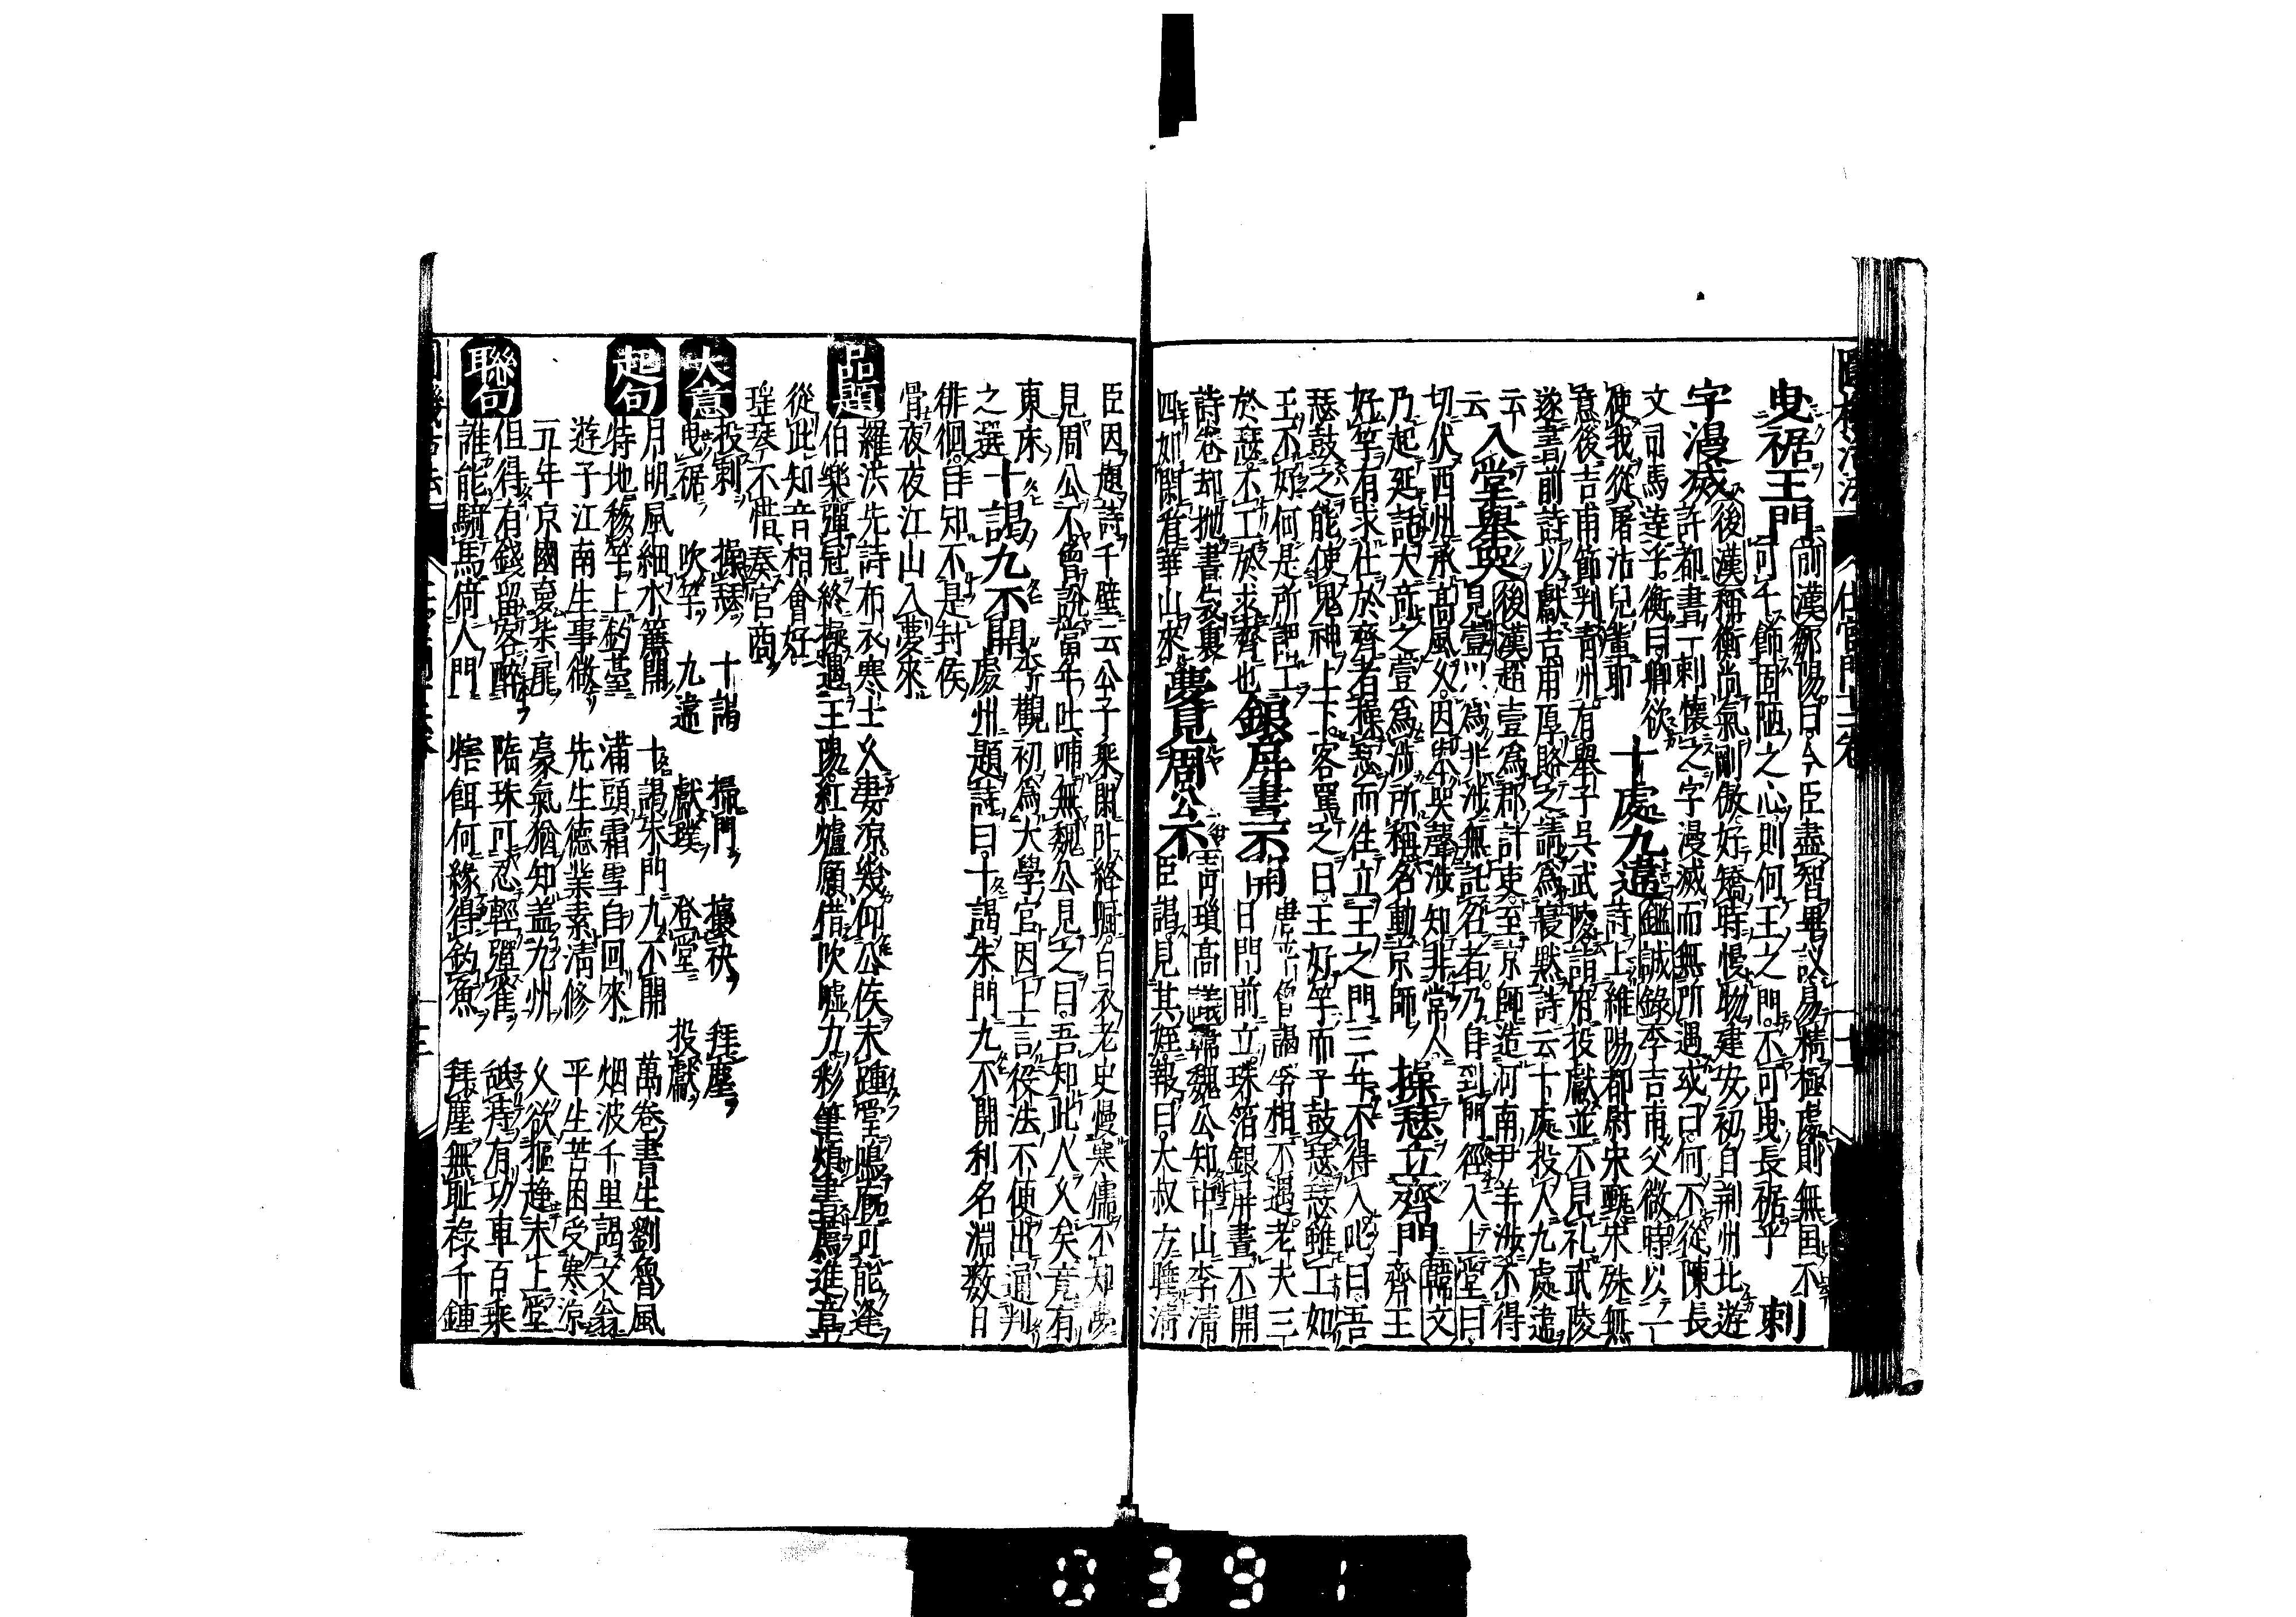 曳裾王門 前漢鄒陽曰今臣盡智畢議易精極慮則無国不
可干飾固陋之心則何王之門不可曳長裾乎 刺
字漫滅 後漢禰衡尚氣剛傲好矯時慢物建安初自荊州北遊
許都書一刺懷之字漫滅而無所遇或曰何不從陳長
文司馬逹乎衡曰卿欲
使我從屠沽兒輩耶 十處九遣 鑑誡錄李吉甫父微時以一
詩上維陽都尉宋
意後吉甫節判青州有舉子吳武陵謁府投獻並不見礼武陵
遂書前詩以獻吉甫厚賂之請為寢黙詩云十處投人九處遣
云 入堂舉哭 後漢趙壹為郡計吏至京師造河南尹羊渉不得
見壹以為非渉無託名者乃自到門徑入上堂曰
切伏西州承高風父因舉哭聲渉知非常人
乃起延話大竒之壹為渉所稱名動京師 操瑟立齊門 韓文
齊王
好竽有求仕於齊者操瑟而往立王之門三年不得入叱曰吾
瑟鼓之能使鬼神上下客罵之曰王好竽而子鼓瑟瑟雖工如
王不好何是所謂工
於瑟不工於求齊也 銀屏晝不開
曾謁宰相不遇老夫三
日門前立珠箔銀屏晝不開
詩卷却抛書袋裏
四如閑看華山來 夢見周公不
魏公知中山李清
臣謁見其姪報曰大叔方睡清
臣因題詩千壁云公子乘閑卧絳㕑白衣老史慢寒儒不知夢
見周公不曾說當年吐哺無魏公見之曰吾知此人久矣竟有
東床
之選 十謁九不開 初為大學官因上言役法不便出通判
處州題詩曰十謁朱門九不開利名淵薮日
徘徊自知不是封侯
骨夜夜江山入夢來
品題 羅洪先詩布衣寒士久凄凉幾仰公侯未踵堂鳴廌可能逢
伯樂彈冠終擬遇王陽紅爐願借吹嘘力彩筆煩書薦進章
從此知音相會好
瑶琴不惜奏宮商
大意 投刺 操瑟 十謁 掃門 攘袂 拜塵
曳裾 吹竽 九遣 獻璞 登堂 投獻
起句 月明風細水簾開 十謁朱門九不開 萬卷書生劉魯風
特地移竿上釣臺 滿頭霜雪自回來 烟波千里謁文翁
遊子江南生事微 先生德業素清修 平生苦困受寒凉
二年京國夏柴扉 豪氣猶知盖九州 久欲摳趍未上堂
聯句 但得有錢留客醉 隋珠可忍輕彈雀 舐痔有功車百乘
誰能騎馬倚人門 犗餌何緣得釣魚 拜塵無耻祿千鍾
0391